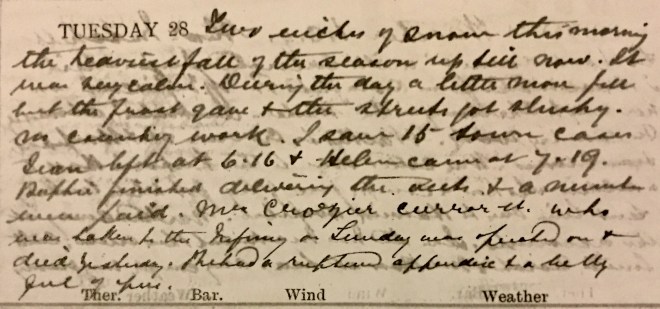 TUESDAY 28 Two inches of snow this morning
the heaviest fall of the season up till now. It
was very calm. During the day a little more fell
but the frost gave & the streets got slushy.
no country work. I saw 15 town cases
Jean left at 6.16 & Helen came at 7.19.
finished delivering the accts & a number
were paid. Mrs Crozier Currar St. who
was taken to the Infirmy on Sunday was operated on &
died yesterday. He had a ruptured appendix & a belly
full of pus.
Ther. Bar. Wind Weather